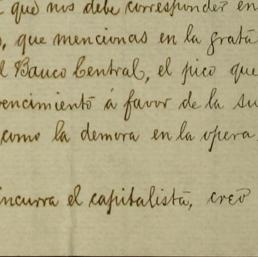 que nos debe corresponder en
, que mencionas en la grata
l Banco Central, el pico que
vencimiento á favor de la su
como la demora en la opera
incurra el capitalista, creo